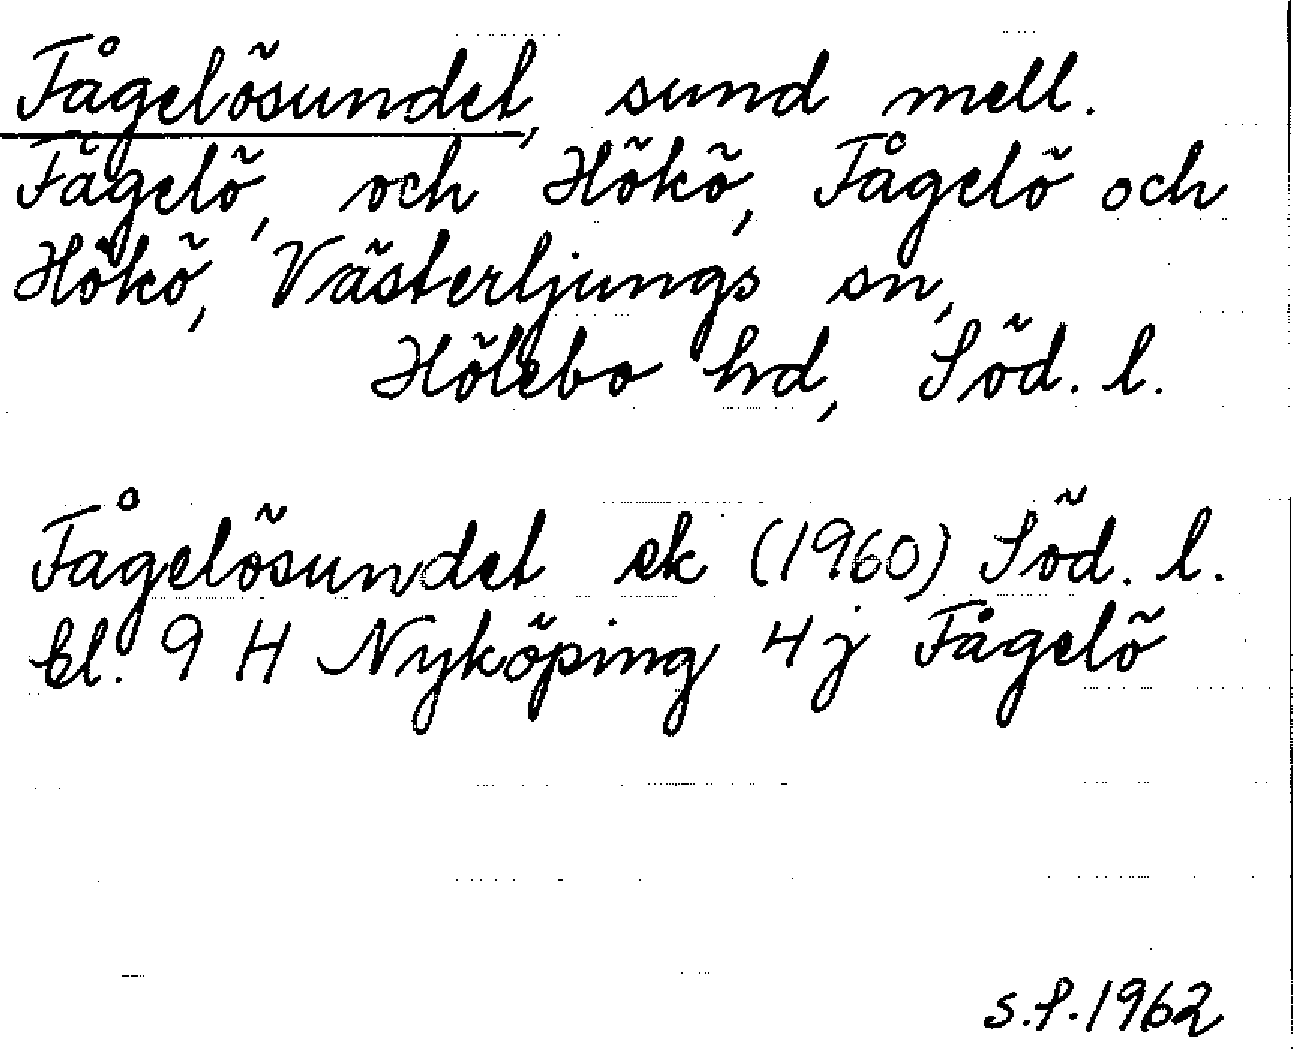 Fågelösundet, sund mell.
Fågelö, och Hökö, Fågelö och
Hökö, Västerljungs sn,
Hölebo hd, Söd. l.
Fågelösundet ek (1960) Söd. l.
bl. 9 H Nyköping 4j Fågelö
s.f. 1962